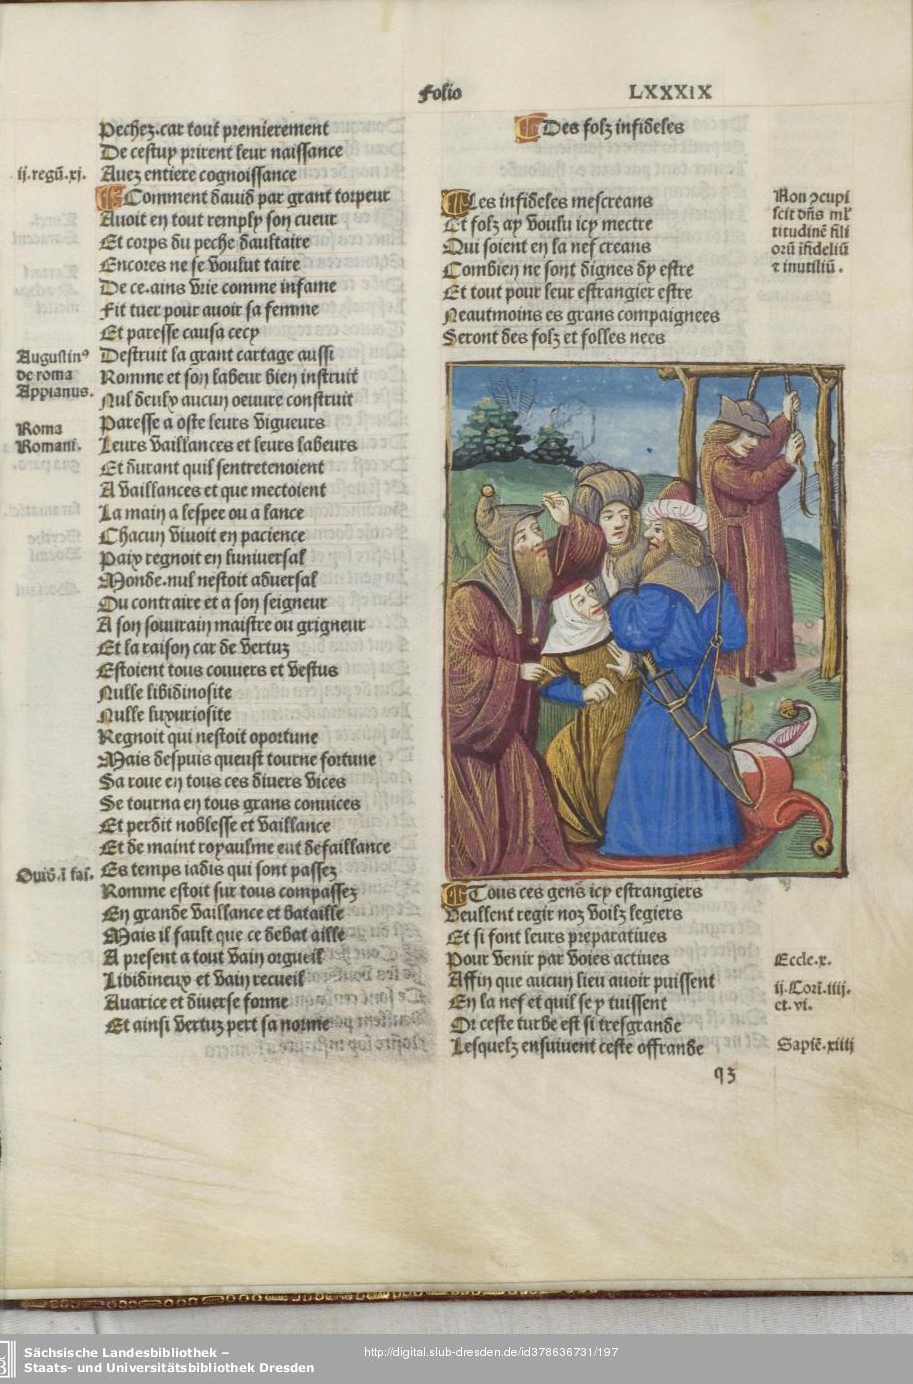 Folio LXXXIX
Pechez.car tout premierement
De cestuy prirent leur naissance
ij.regū.xj.
Auez entiere cognoissance
Comment dauid par grant torpeur
Auoit en tout remply son cueur
Et corps du peche daultaire
Encores ne se voulut taire
De ce.ains vrie comme infame
Fit tuer pour auoir sa femme
Et paresse causa cecy
Augustinꝰ
de roma
Appianus.
Destruit la grant cartage aussi
Romme et son labeur bien instruit
Nul deulx aucun oeuure construit
Roma
Romani.
Paresse a oste leurs vigueurs
Leurs vaillances et leurs labeurs
Et durant quil sentretenoient
A vaillances et que mectoient
La main a lespee ou a lance
Chacun viuoit en pacience
Paix regnoit en luniuersal
Monde.nul nestoit aduersal
Ou contraire et a son seigneur
A son souurain maistre ou grigneur
Et la raison car de vertuz
Estoient tous couuers et vestus
Nulle libidinosite
Nulle luxuriosite
Regnoit qui nestoit oportune
Mais despuis queust tourne fortune
Sa roue en tous ces diuers vices
Se tourna en tous grans conuices
Et perdit noblesse et vaillance
Et de maint royaulme eut defaillance
Ouid.ī fas.
Es temps iadis qui sont passez
Romme estoit sur tous compassez
En grande vaillance et bataille
Mais il fault que ce debat aille
A present a tout vain orgueil
Libidineux et vain recueil
Auarice et diuerse forme
Et ainsi vertuz pert sa norme
Des folz infideles
Les infideles mescreans
Et folz ay voulu icy mectre
Qui soient en la nef creans
Combien ne sont dignes dy estre
Et tout pour leur estrangier estre
Neautmoins es grans compaignees
Seront des folz et folles nees
Non ↄcupi
scit dn̄s ml'
titudinē fili
orū īfideliū
⁊ inutiliū.
Tous ces gens icy estrangiers
Veullent regir noz voilz legiers
Et si font leurs preparatiues
Pour venir par voies actiues
Affin que aucun lieu auoir puissent
En la nef et quil se y tuissent
Or ceste turbe est si tresgrande
Lesquelz ensuiuent ceste offrande
Eccle.x.
ij.Cori.iiij.
et.vi.
Sapiē.xiiij
q3
Sächsische Landesbibliothek –
Staats- und Universitätsbibliothek Dresden
http://digital.slub-dresden.de/id378636731/197